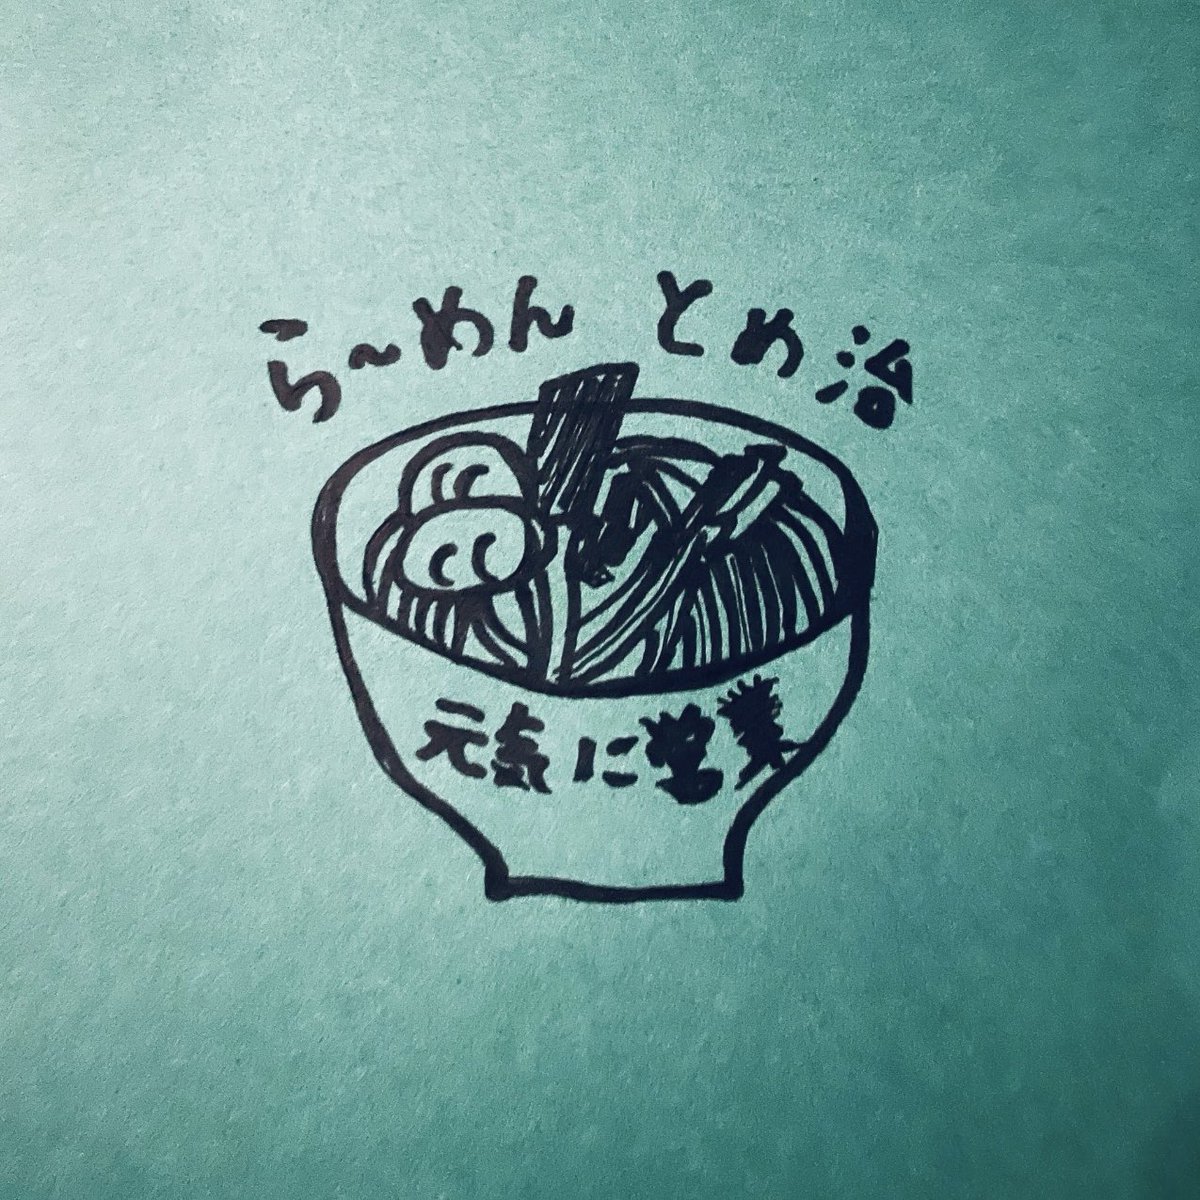 ら〜めん とめ治
元気に営業